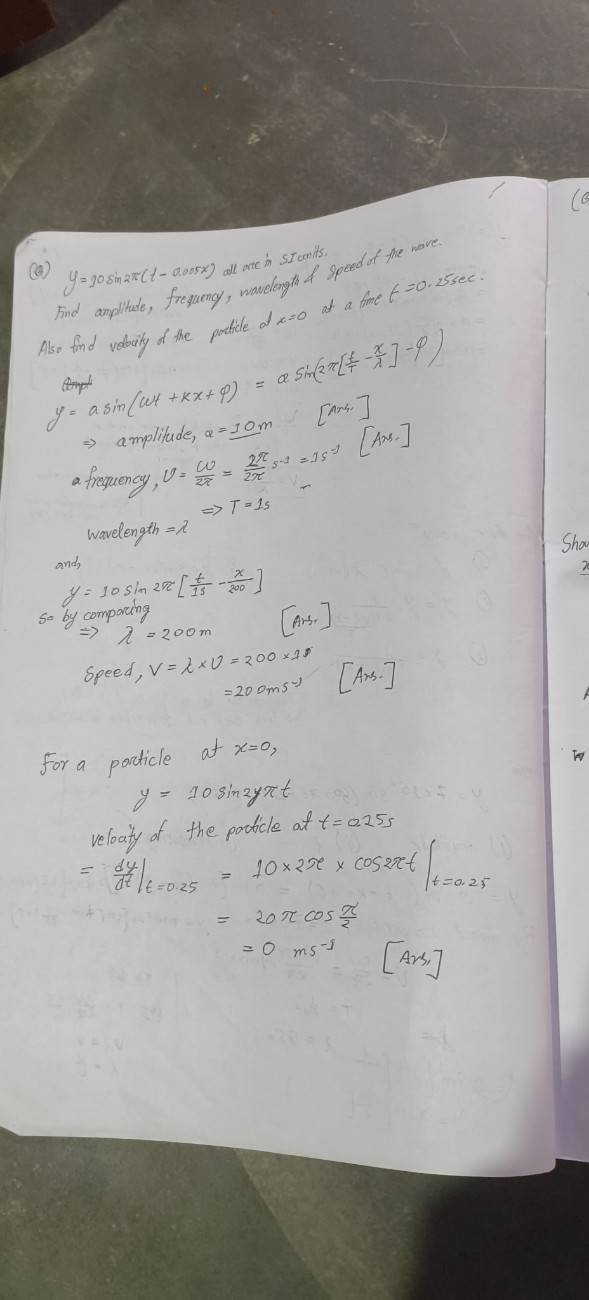 (Q) y=10 sin 2π(t - 0.005x) all are in SI units.
Find amplitude, frequency, wavelength & speed of the wave.
Also find velocity of the particle at x=0 at a time t=0.25sec.
y = a sin(ωt + kx + φ) = a sin(2π[t/T - x/λ] - φ)
⇒ amplitude, a = 10m [Ans.]
a frequency, υ = ω/2π = 2π/2π s⁻¹ = 1s⁻¹ [Ans.]
⇒ T = 1s
wavelength = λ
and,
y = 10 sin 2π [t/1s - x/200]
so by comparing
⇒ λ = 200m [Ans.]
Speed, V = λ × υ = 200 × 1
= 200 ms⁻¹ [Ans.]
For a particle at x=0,
y = 10 sin 2π t
velocity of the particle at t=0.25s
= dy/dt |t=0.25 = 10 × 2π × cos 2πt |t=0.25
= 20 π cos π/2
= 0 ms⁻¹ [Ans.]
(Q
Show